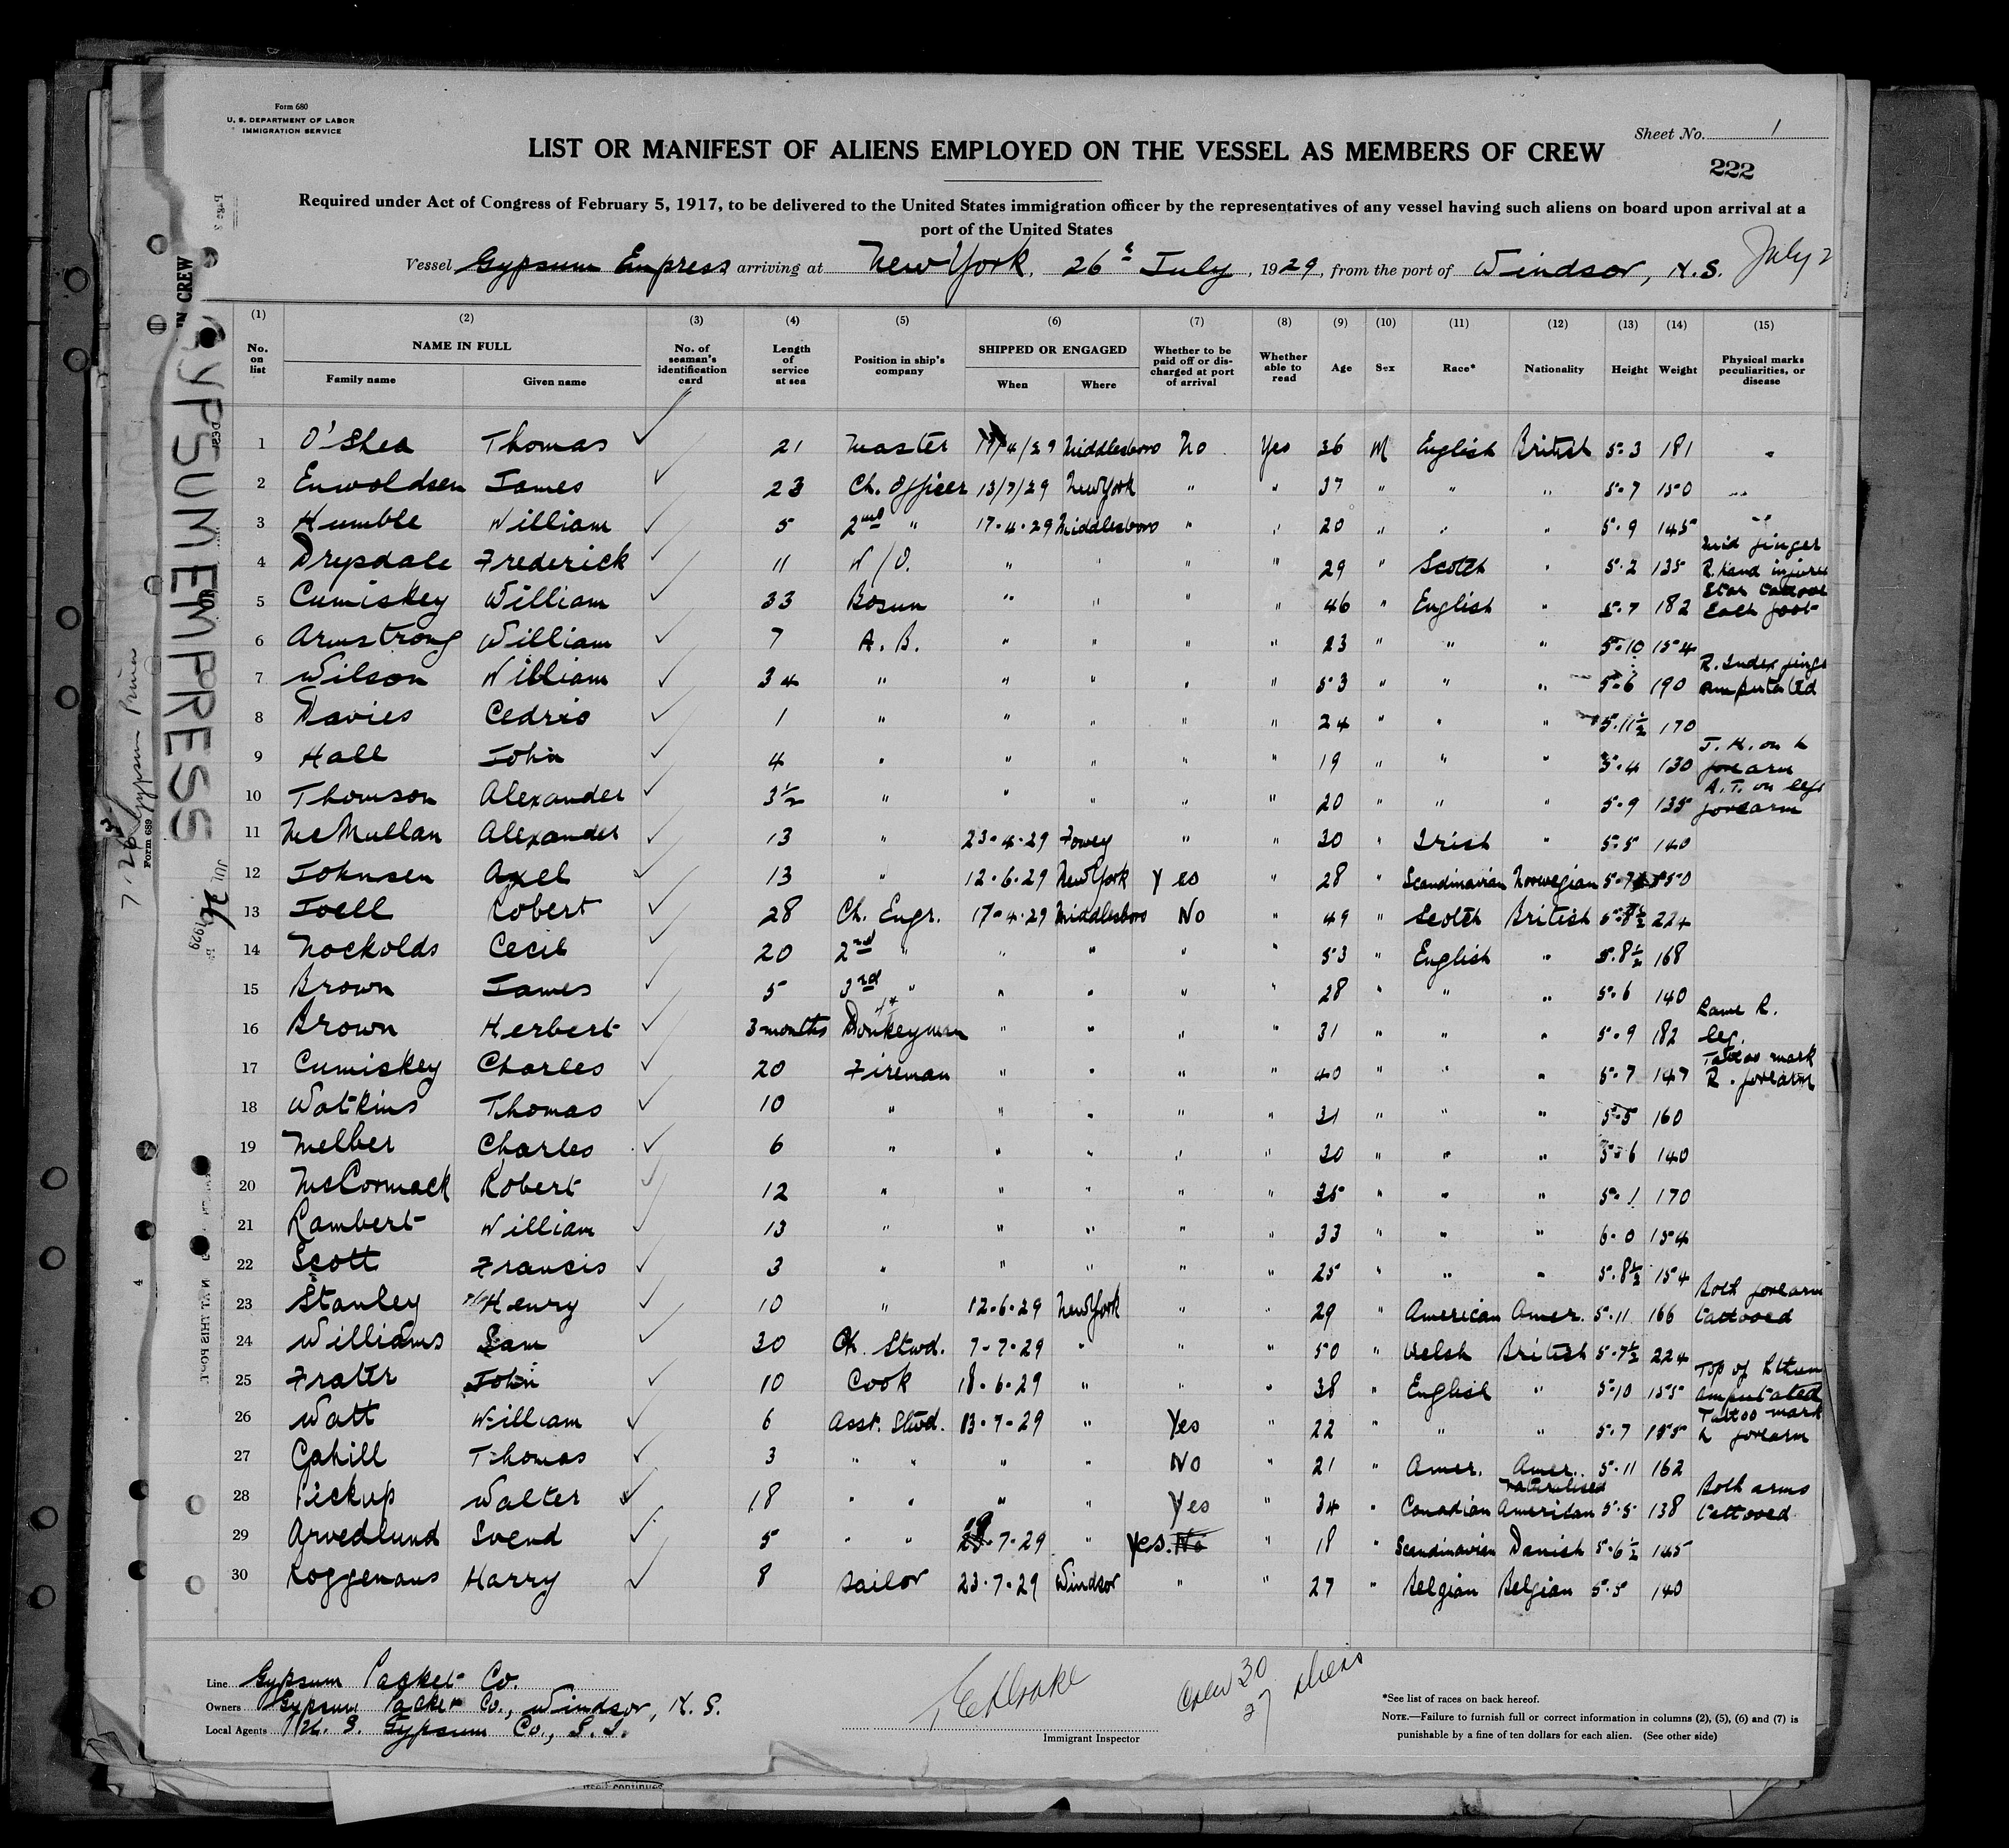 Form 680
U. S. DEPARTMENT OF LABOR
IMMIGRATION SERVICE
Sheet No. 1
LIST OR MANIFEST OF ALIENS EMPLOYED ON THE VESSEL AS MEMBERS OF CREW
222
Required under Act of Congress of February 5, 1917, to be delivered to the United States immigration officer by the representatives of any vessel having such aliens on board upon arrival at a
port of the United States
Vessel Gypsum Empress arriving at New York, 26th July, 1929, from the port of Windsor, N.S. July 2
(1) (2) (3) (4) (5) (6) (7) (8) (9) (10) (11) (12) (13) (14) (15)
No. on list NAME IN FULL Family name Given name No. of seaman's identification card Length of service at sea Position in ship's company SHIPPED OR ENGAGED When Where Whether to be paid off or discharged at port of arrival Whether able to read Age Sex Race* Nationality Height Weight Physical marks peculiarities, or disease
1 O'Shea Thomas ✓ 21 Master 17/4/29 Middlesboro No Yes 36 M English British 5.3 181 -
2 Enwoldsen James ✓ 23 Ch. Officer 13/7/29 New York " " 37 " " " 5.7 150 "
3 Humble William ✓ 5 2nd " 17.4.29 Middlesboro " " 20 " " " 5.9 145 "
4 Drysdale Frederick ✓ 11 W/O. " " " " 29 " Scotch " 5.2 135 Mid finger R. Hand injured
5 Cumiskey William ✓ 33 Bosun " " " " 46 " English " 5.7 182 Star tattooe Each foot
6 Armstrong William ✓ 7 A. B. " " " " 23 " " " 5.10 154
7 Wilson William ✓ 34 " " " " " 53 " " " 5.6 190 R. Index finger amputated
8 Davies Cedric ✓ 1 " " " " " 24 " " " 5.11½ 170
9 Hall John ✓ 4 " " " " " 19 " " " 5.4 130 J. H. on L forearm
10 Thomson Alexander ✓ 3½ " " " " " 20 " " " 5.9 135 A. T. on left forearm
11 McMullan Alexander ✓ 13 " 23.4.29 Fowey " " 30 " Irish " 5.5 140
12 Johnsen Axel ✓ 13 " 12.6.29 New York Yes " 28 " Scandinavian Norwegian 5.7 150
13 Joell Robert ✓ 28 Ch. Engr. 17.4.29 Middlesboro No " 49 " Scotch British 5.8½ 224
14 Nockolds Cecil ✓ 20 2nd " " " " " 53 " English " 5.8½ 168
15 Brown James ✓ 5 3rd " " " " " 28 " " " 5.6 140
16 Brown Herbert ✓ 3 months Donkeyman " " " " 31 " " " 5.9 182 Lame R. leg.
17 Cumiskey Charles ✓ 20 Fireman " " " " 40 " " " 5.7 147 Tattoo mark R. forearm
18 Watkins Thomas ✓ 10 " " " " " 31 " " " 5.5 160
19 Melber Charles ✓ 6 " " " " " 30 " " " 5.6 140
20 McCormack Robert ✓ 12 " " " " " 35 " " " 5.1 170
21 Lambert William ✓ 13 " " " " " 33 " " " 6.0 154
22 Scott Francis ✓ 3 " " " " " 25 " " " 5.8½ 154
23 Stanley Henry ✓ 10 " 12.6.29 New York " " 29 " American Amer. 5.11 166 Both forearm tattooed
24 Williams Sam ✓ 30 Ch. Stwd. 7-7-29 " " " 50 " Welsh British 5.7½ 224
25 Frater John ✓ 10 Cook 18.6.29 " " " 38 " English " 5.10 155 Top of L thum amputated
26 Watt William ✓ 6 Asst. Stwd. 13.7.29 " Yes " 22 " " " 5.7 155 Tattoo mark L forearm
27 Cahill Thomas ✓ 3 " " " " No " 21 " Amer. Amer. 5.11 162
28 Pickup Walter ✓ 18 " " " " Yes " 34 " Canadian Naturalised American 5.5 138 Both arms tattooed
29 Arvedlund Svend ✓ 5 " " 19.7.29 " Yes. No " 18 " Scandinavian Danish 5.6½ 145
30 Roggemans Harry ✓ 8 Sailor 23.7.29 Windsor " " 27 " Belgian Belgian 5.5 140
Line Gypsum Packet Co.
Owners Gypsum Packet Co., Windsor, N. S.
Local Agents U. S. Gypsum Co., S. I.
Immigrant Inspector
Crew 30
27 aliens
*See list of races on back hereof.
NOTE.—Failure to furnish full or correct information in columns (2), (5), (6) and (7) is
punishable by a fine of ten dollars for each alien. (See other side)
GYPSUM EMPRESS
IN CREW
JUL 26 1929
Form 689